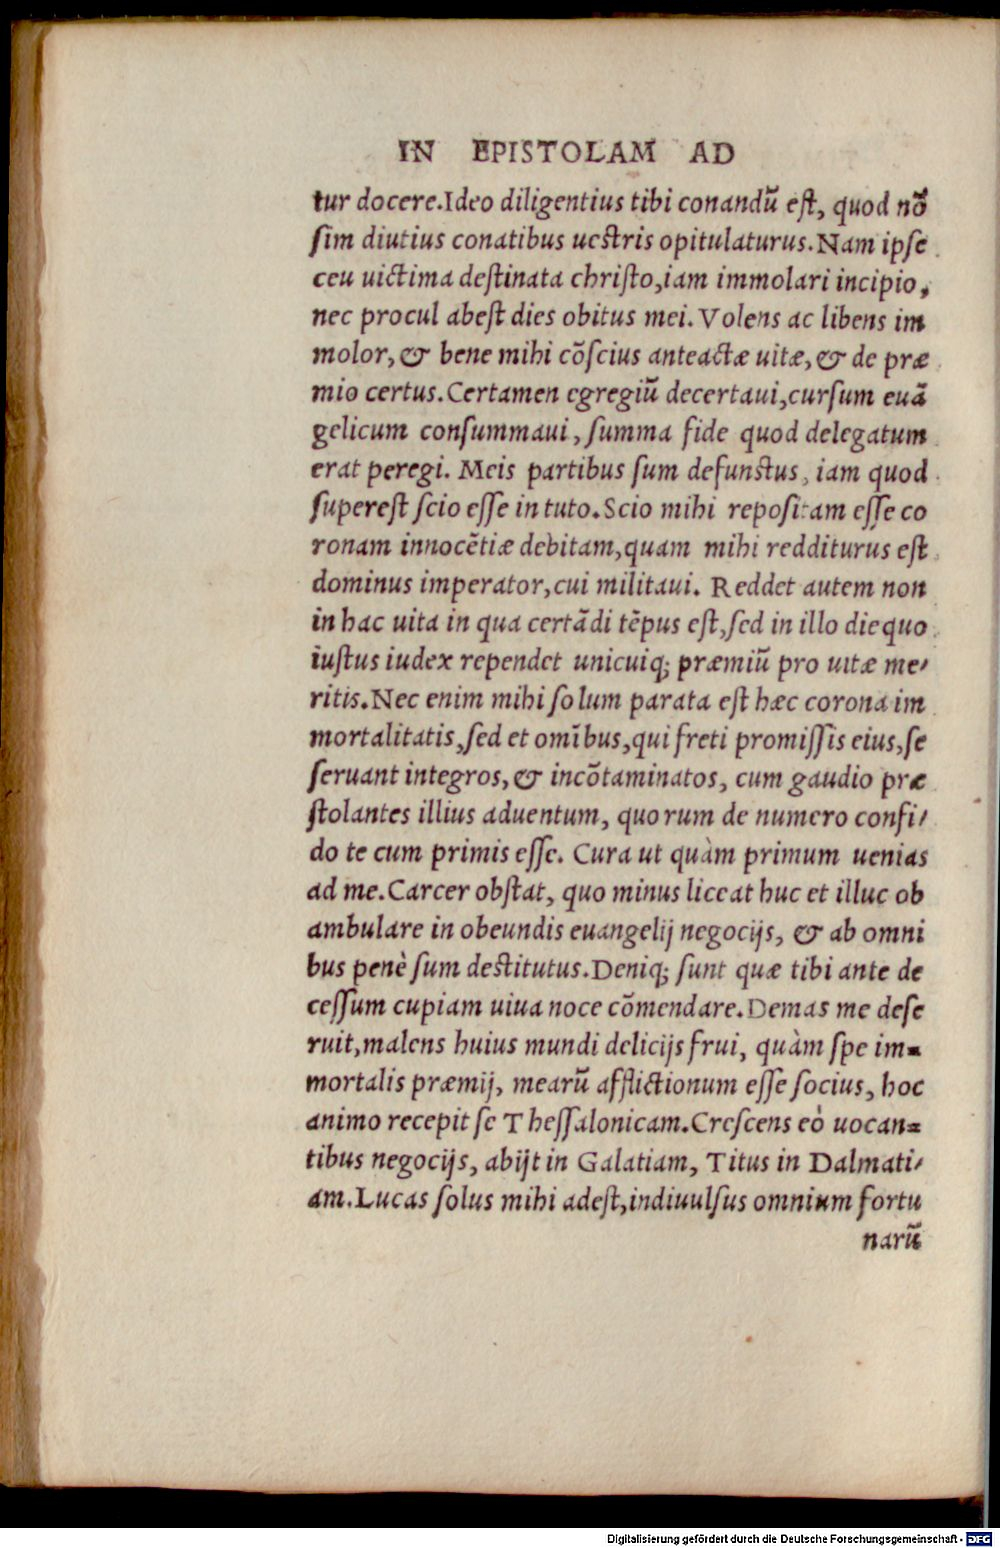 IN EPISTOLAM AD
tur docere. Ideo diligentius tibi conandũ est, quod nõ
sim diutius conatibus uestris opitulaturus. Nam ipse
ceu uictima destinata christo, iam immolari incipio,
nec procul abest dies obitus mei. Volens ac libens im
molor, & bene mihi cõscius anteactæ uitæ, & de præ
mio certus. Certamen egregiũ decertaui, cursum euã
gelicum consummaui, summa fide quod delegatum
erat peregi. Meis partibus sum defunctus, iam quod
superest scio esse in tuto. Scio mihi repositam esse co
ronam innocẽtiæ debitam, quam mihi redditurus est
dominus imperator, cui militaui. Reddet autem non
in hac uita in qua certãdi tẽpus est, sed in illo die quo
iustus iudex rependet unicuiq; præmiũ pro uitæ me-
ritis. Nec enim mihi solum parata est hæc corona im
mortalitatis, sed et omĩbus, qui freti promissis eius, se
seruant integros, & incõtaminatos, cum gaudio præ
stolantes illius aduentum, quorum de numero confi-
do te cum primis esse. Cura ut quàm primum uenias
ad me. Carcer obstat, quo minus liceat huc et illuc ob
ambulare in obeundis euangelij negocijs, & ab omni
bus penè sum destitutus. Deniq; sunt quæ tibi ante de
cessum cupiam uiua noce cõmendare. Demas me dese
ruit, malens huius mundi delicijs frui, quàm spe im-
mortalis præmij, mearũ afflictionum esse socius, hoc
animo recepit se Thessalonicam. Crescens eò uocan-
tibus negocijs, abijt in Galatiam, Titus in Dalmati-
am. Lucas solus mihi adest, indiuulsus omnium fortu
narũ
Digitalisierung gefördert durch die Deutsche Forschungsgemeinschaft - DFG